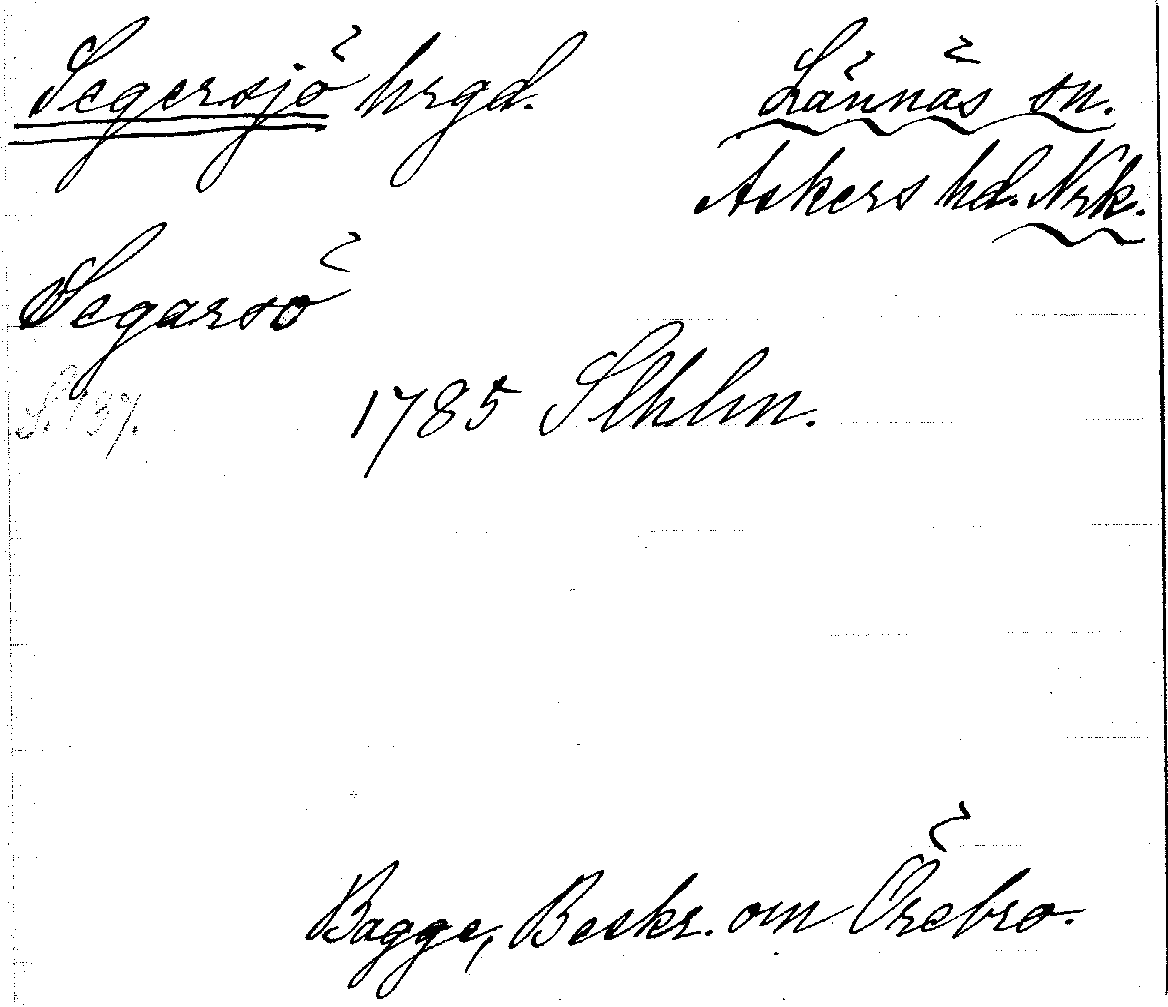 Segersjö hrgd.
Lännäs sn.
Askers hd. Nrk.
Segarsö
S. 137.
1785 Sthlm.
Bagge, Beskr. om Örebro.